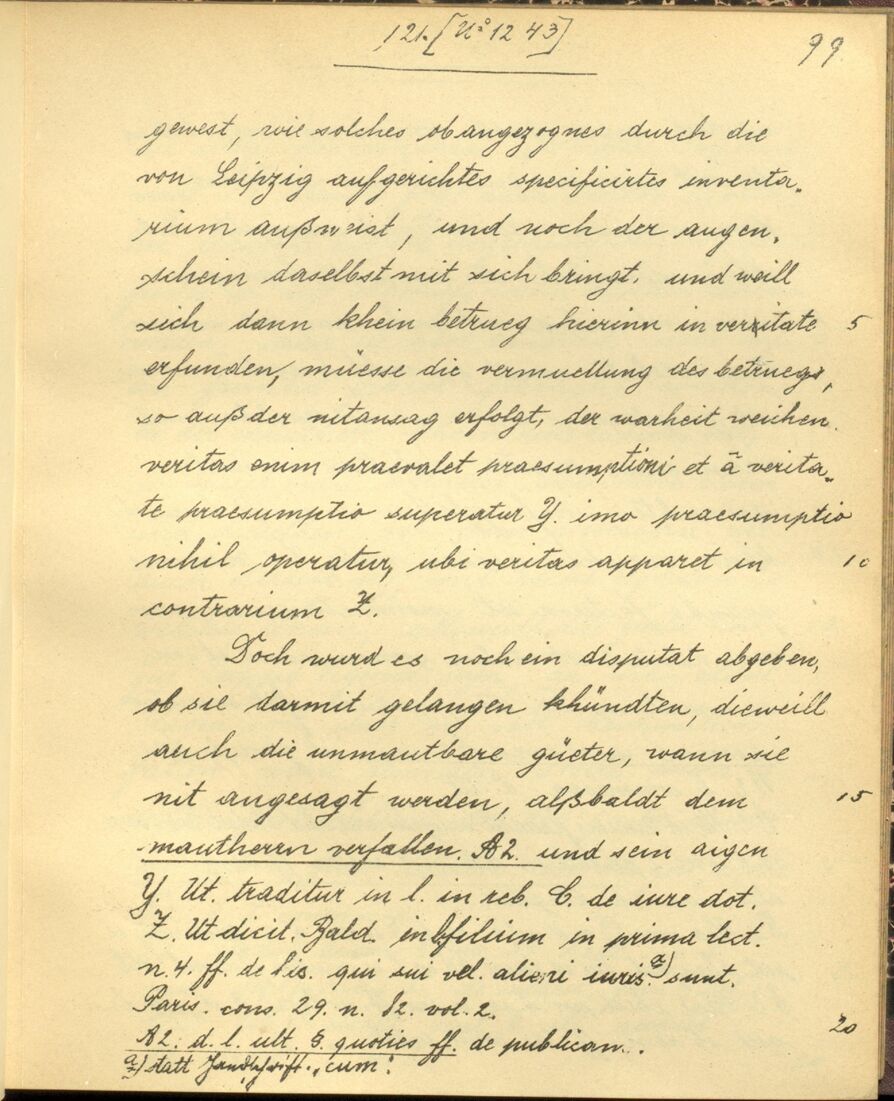 121. [No 1243]
99
gewest, wie solches obangezognes durch die
von Leipzig aufgerichtes specificirtes inventa„
rium außweist, und noch der augen„
schein daselbst mit sich bringt. und weill
sich dann khein betrueg hierinn in veritate 5
erfunden, müesse die vermuettung des betruegs,
so auß der nitansag erfolgt, der warheit weichen.
veritas enim praevalet praesumptioni et ā verita„
te praesumptio superatur Y. imo praesumptio
nihil operatur, ubi veritas apparet in 10
contrarium Z.
Doch wurd es noch ein disputat abgeben,
ob sie darmit gelangen khündten, dieweill
auch die unmautbare güeter, wann sie
nit angesagt werden, alßbaldt dem 15
mautherrn verfallen. A2. und sein aigen
Y. Ut. traditur in l. in reb. C. de iure dot.
Z. Ut dicit. Bald. in l. filium in prima lect.
n. 4. ff. de his. qui sui vel. alieni iuris. a) sunt.
Paris. cons. 29. n. 82. vol. 2.
A2. d. l. ult. §. quoties ff. de publican.. 20
a) statt Handschrift. „cum".